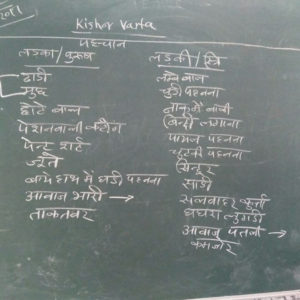 Kishor Varta
पहचान
लड़का / पुरुष
लड़की / स्त्रि
दाढ़ी
मुछ
छोटे बाल
पेन्ट शर्ट
जूते
बाये हाथ में घडी पहनना
आवाज भारी →
ताकतवर
लम्बे बाल
चुडी पहनना
नाक में बाली
बिन्दी लगाना
पायल पहनना
पहनना
सिन्दूर
साडी
सलवार कुर्ती
घघरा लुगडी
आवाज पतली →
कमजोर